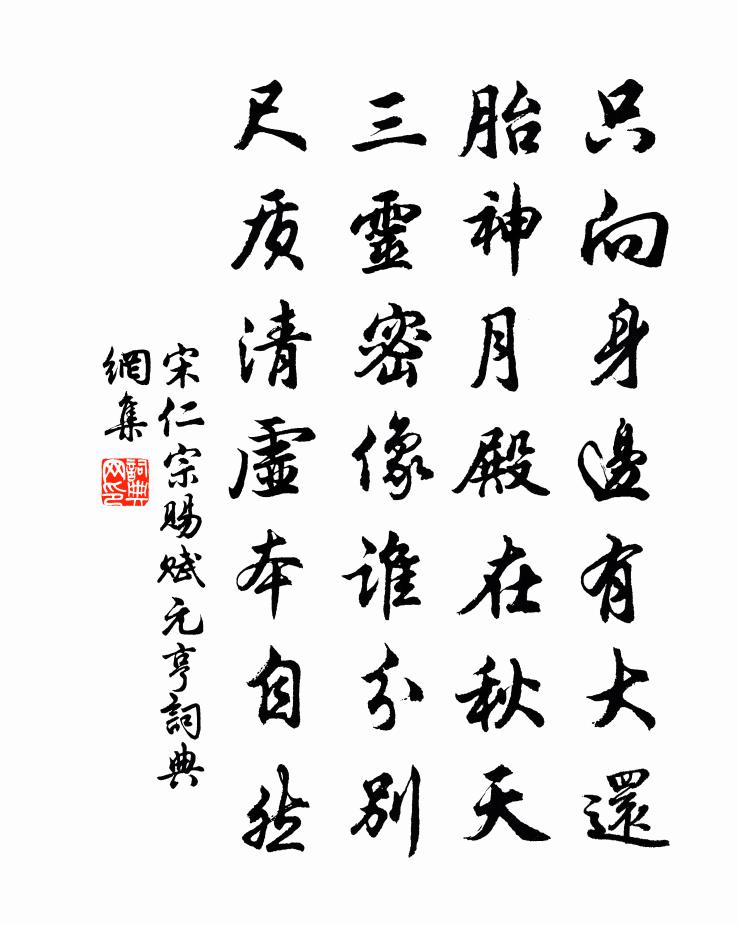 只向身邊有大還
胎神月殿在秋天
三靈密像誰分別
尺質清虛本自然
宋仁宗賜赋元亨詞典
網集
詞典
网印